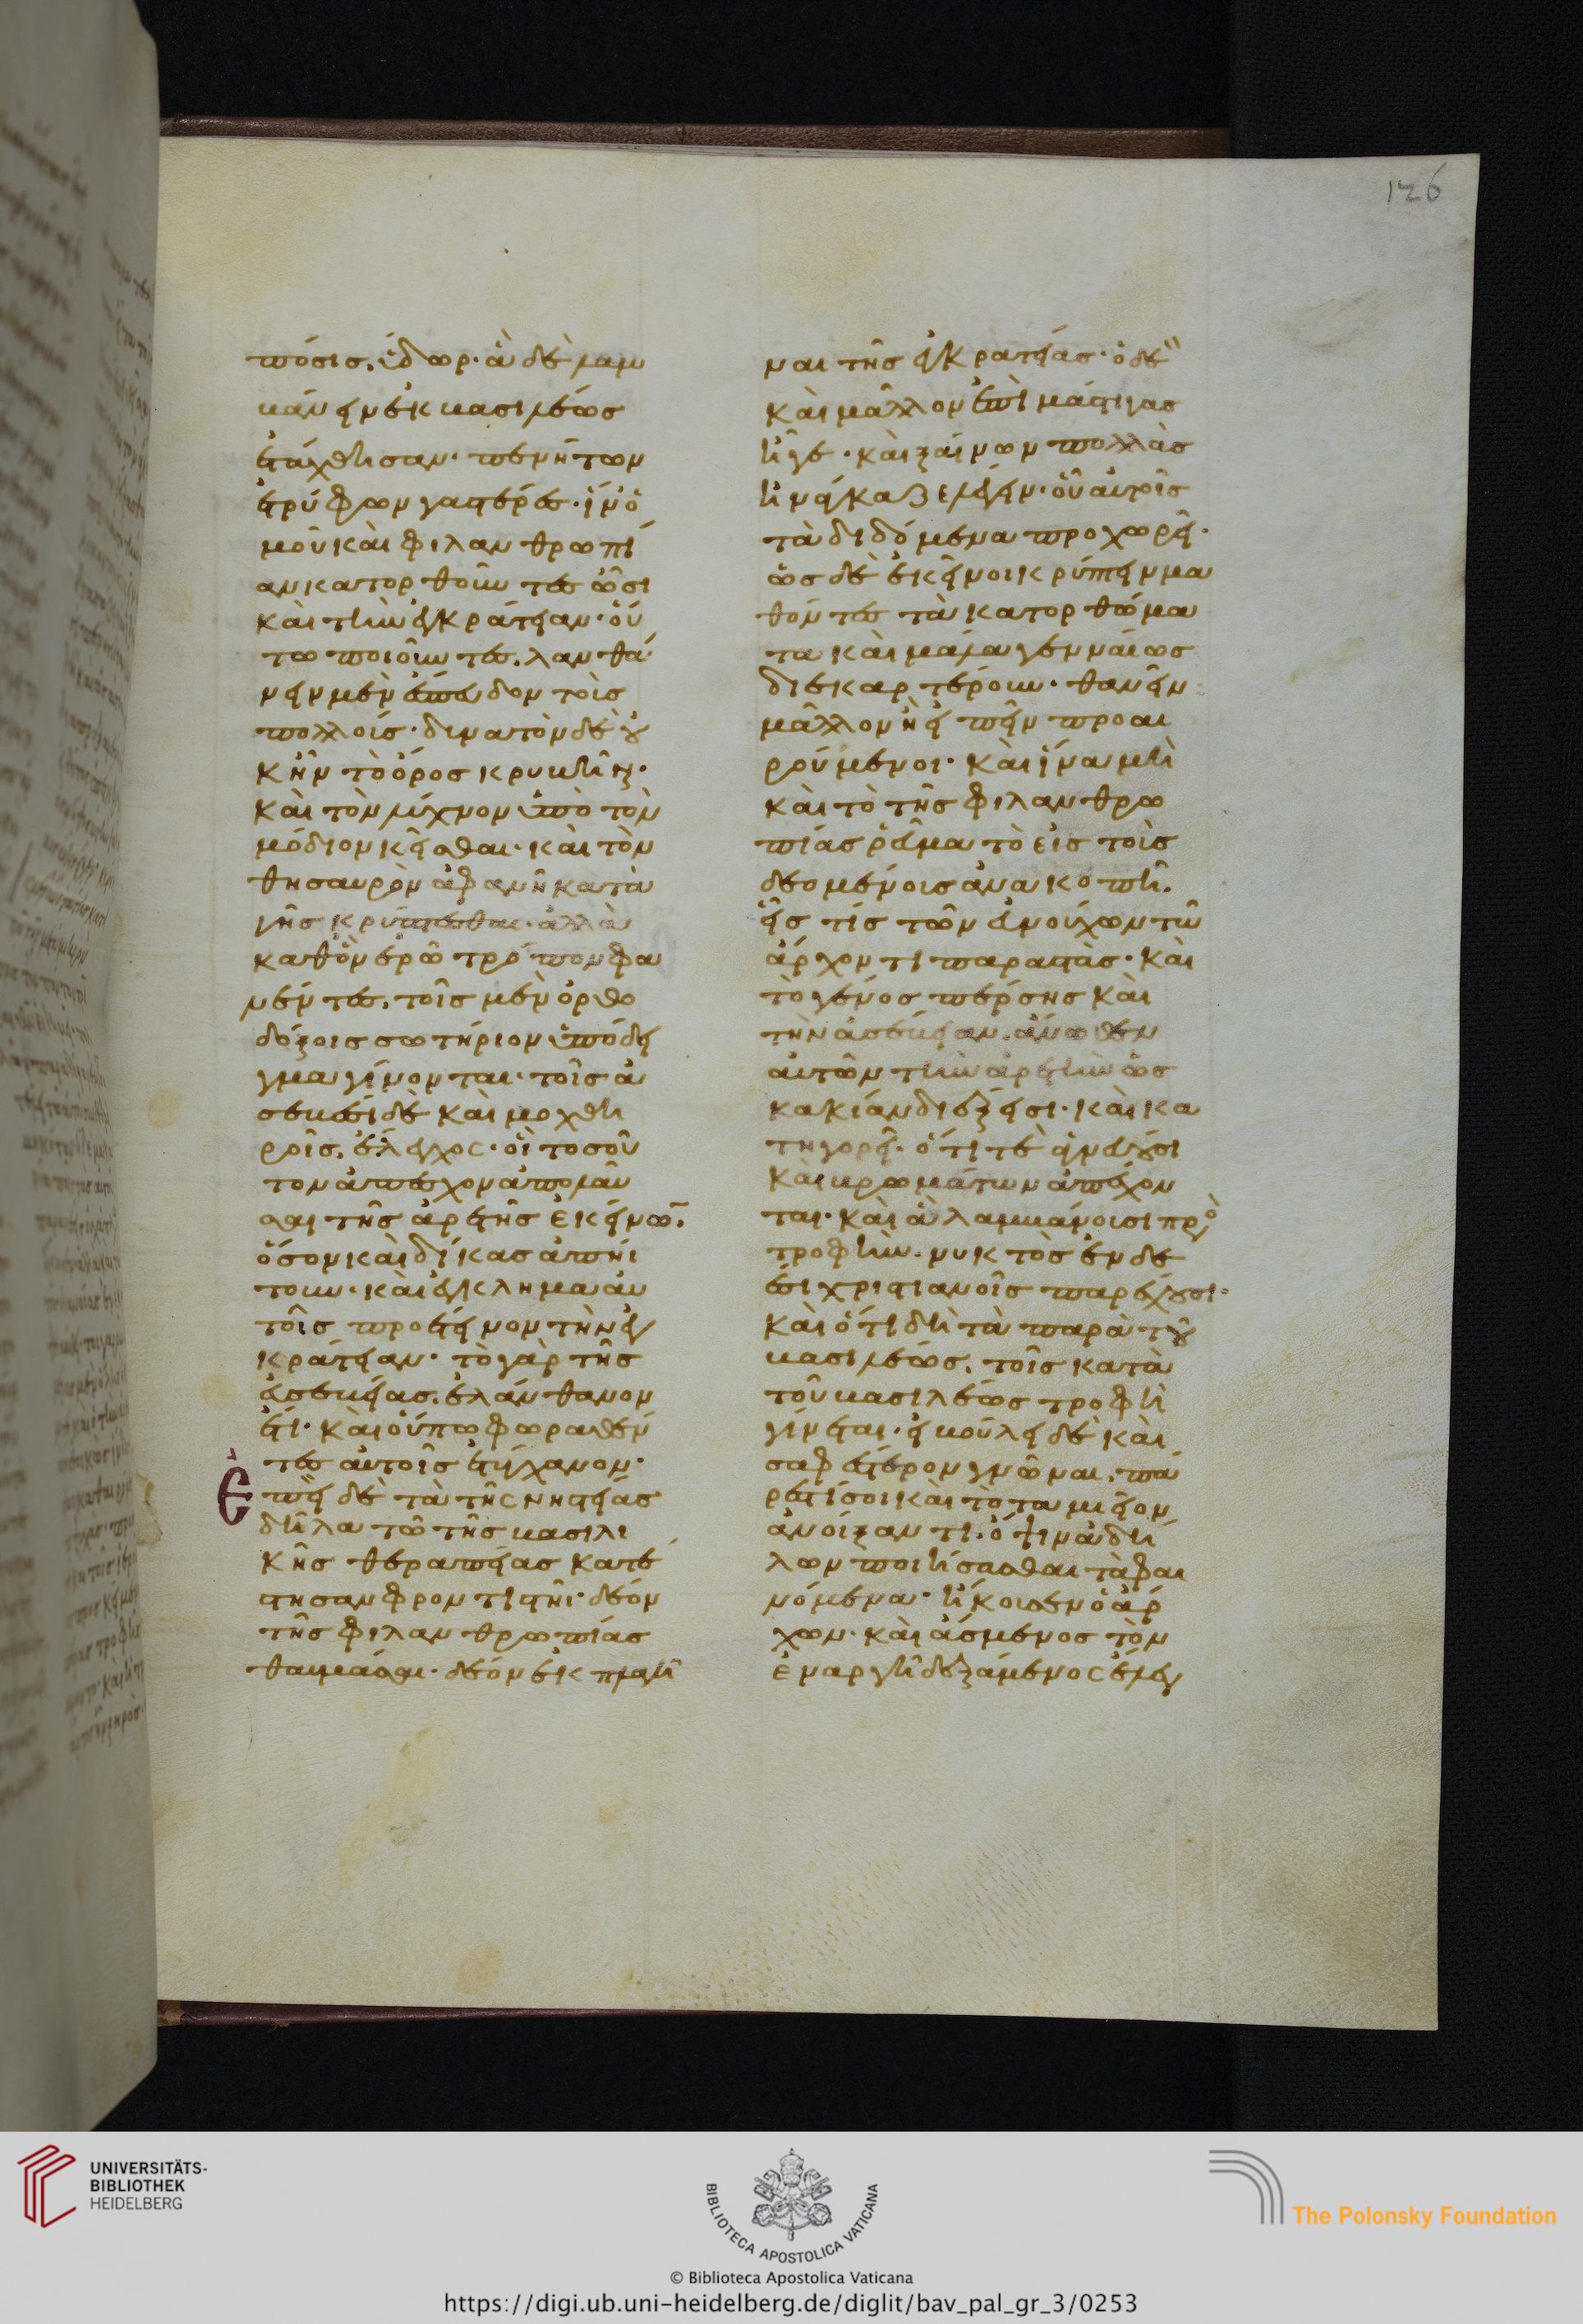 πόσις, ὕδωρ· ἃ δὲ λαμ
βάνειν ἐκ βασιλέως
ἐτάχθησαν· πενήτων
ἐτρύφων γαστέρες· ἵν' ὁ
μοῦ καὶ φιλανθρωπί
αν κατορθοῦντες ὦσι
καὶ τὴν ἐγκράτειαν· οὕ
τω ποιοῦντες, λανθά
νειν μὲν ἔσπευδον τοὺς
πολλούς· δυνατὸν δὲ οὐ
κ ἦν τὸ ὄρος κρυβῆναι·
καὶ τὸν λύχνον ὑπὸ τὸν
μόδιον κεῖσθαι· καὶ τὸν
θησαυρὸν ἀφανῆ κατὰ
γῆς κρύπτεσθαι· ἀλλὰ
καθ' ὃν ἐρῶ τρόπον φα
νέντες, τοῖς μὲν ὀρθο
δόξοις σωτήριον ὑπόδει
γμα γίνονται· τοῖς ἀ
σεβέσι δὲ καὶ μοχθη
ροῖς, ἔλεγχος· οἳ τοσοῦ
τον ἀπέσχον ἀπολαῦ
σαι τῆς ἀρετῆς ἐκείνων,
ὅσον καὶ δίκας ἀπῄ
τουν· καὶ ἔγκλημα αὐ
τοῖς προέτεινον τὴν ἐγ
κράτειαν· τὸ γὰρ τῆς
ἀσεβείας, ἐλάνθανον
ἔτι· καὶ οὔπω φωραθέν
τες αὐτοῖς ἐτύγχανον·
Ἐπεὶ δὲ τὰ τῆς νηστείας
δῆλα τῷ τῆς βασιλι
κῆς θεραπείας κατέ
στησαν φροντιστῇ· δέον
τῆς φιλανθρωπίας
θαυμάσαι· δέον ἐκπλαγῆ
126
ναι τῆς ἐγκρατείας· ὁ δὲ
καὶ μᾶλλον ἐπὶ μάστιγας
ἦγε· καὶ ξαίνων πολλὰς
ἠνάγκαζε λέγειν· οὗ αὐτοῖς
τὰ διδόμενα προχωρεῖ·
ὡς δὲ ἐκεῖνοι κρύπτειν μα
θόντες τὰ κατορθώμα
τα καὶ μάλα γενναίως
διεκαρτέρουν· θανεῖν
μᾶλλον ἢ εἰπεῖν προαι
ρούμενοι· καὶ ἵνα μὴ
καὶ τὸ τῆς φιλανθρω
πίας ῥεῦμα τὸ εἰς τοὺς
δεομένοις ἀνακοπῇ.
εἷς τίς τῶν εὐνούχων τῷ
ἄρχοντι παραστὰς· καὶ
τὸ γένος πέρσης καὶ
τὴν ἀσέβειαν, ἄνωθεν
αὐτῶν τὴν ἀρετὴν ὡς
κακίαν διεξεισι· καὶ κα
τηγορεῖ· ὅτι τὲ
καὶ βρωμάτων ἀπέχον
ται· καὶ ἃ λαμβάνουσι πρὸς
τροφὴν, νυκτὸς ἐνδε
έσι χριστιανοῖς παρέχουσι·
καὶ ὅτι δὴ τὰ παρὰ τοῦ
βασιλέως, τοῖς κατὰ
τοῦ βασιλέως τροφὴ
γίνεται· εἰ βούλει δὲ καὶ
σαφέστερον γνῶναι, πά
ρεστί σοι καὶ τὸ ταμιεῖον
ἀνοίξαντι· ὄψιν ἀδή
λων ποιήσασθαι τὰ φαι
νόμενα· ἤκουσεν ὁ ἄρ
χων· καὶ ἄσμενος τὸν
ἐναργῆ δεξάμενος ἔλεγ
UNIVERSITÄTS-
BIBLIOTHEK
HEIDELBERG
BIBLIOTECA APOSTOLICA VATICANA
The Polonsky Foundation
© Biblioteca Apostolica Vaticana
https://digi.ub.uni-heidelberg.de/diglit/bav_pal_gr_3/0253